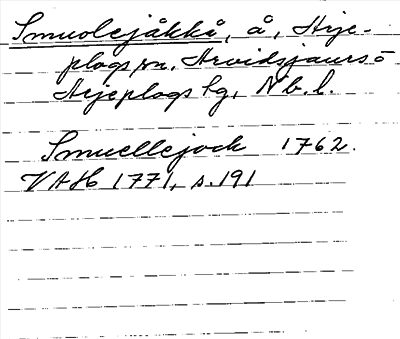 Smuolejåkkå, å, Arje-
plogs sn, Arvidsjaurs o
Arjeplogs tg, Nb. l.
Smuellejock 1762.
VAH 1771, s. 191